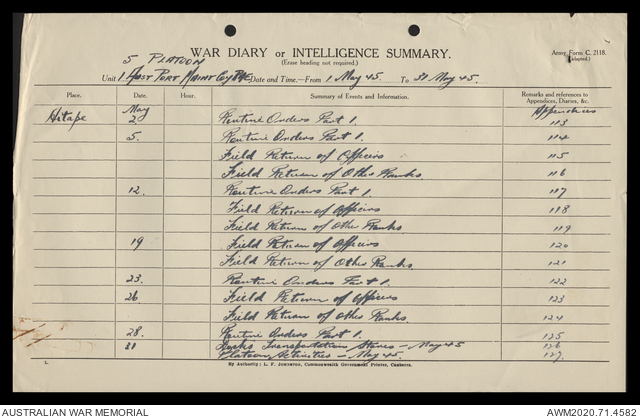 WAR DIARY or INTELLIGENCE SUMMARY.
(Erase heading not required.)
Army Form C. 2118.
(Adapted.)
5 PLATOON
Unit 1 Aust Port Maint Coy RAE Date and Time.—From 1 May 45. To 31 May 45.
Place. Date. Hour. Summary of Events and Information. Remarks and references to Appendices, Diaries, &c.
May Appendices
Aitape 2 Routine Orders Part 1. 113
5. Routine Orders Part 1. 114
Field Return of Officers 115
Field Return of Other Ranks. 116
12. Routine Orders Part 1. 117
Field Return of Officers 118
Field Return of Other Ranks 119
19 Field Return of Officers 120
Field Return of Other Ranks. 121
23. Routine Orders Part 1. 122
26 Field Return of Officers 123
Field Return of Other Ranks. 124
28. Routine Orders Part 1. 125
31 Transportation Stores - May 45 126
Platoon Activities - May 45. 127.
1.
By Authority: L. F. Johnston, Commonwealth Government Printer, Canberra.
AUSTRALIAN WAR MEMORIAL
AWM2020.71.4582